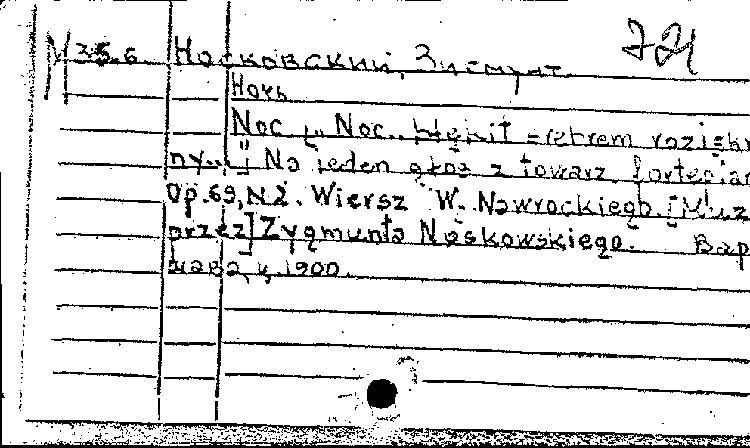 М 35.6 Носковский, Зигмунт 721
Ночь
Noc [„Noc.. błękit srebrem roziskr
ny..."] Na jeden głos z towarz. fortepian
Op. 69, N2. Wiersz W. Nawrockiego. [Muz
przez] Zygmunta Noskowskiego. Вар
шава, ц. 1900.